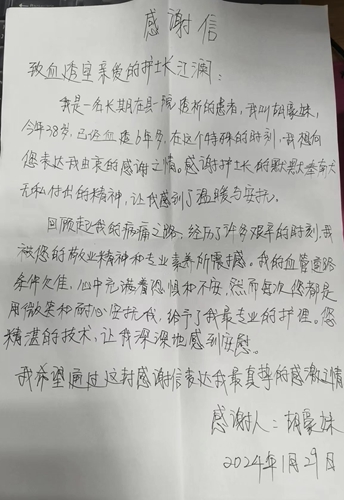 感谢信
致血透室亲爱的护士长江澜:
我是一名长期在县院透析的患者,我叫胡豪妹,
今年38岁,已透血透6年多,在这个特殊的时刻,我想向
您表达我由衷的感谢之情。感谢护士长的默默奉献
无私付出的精神,让我感到了温暖与安抚。
回顾起我的病痛之路,经历了许多艰辛的时刻,我
被您的敬业精神和专业素养所震撼。我的血管通路
条件欠佳,心中充满着恐惧和不安,然而每次您都是
用微笑和耐心安抚我,给予了我最专业的护理。您
精湛的技术,让我深深地感到安慰。
我希望通过这封感谢信表达我最真挚的感激之情
感谢人:胡豪妹
2024年1月29日